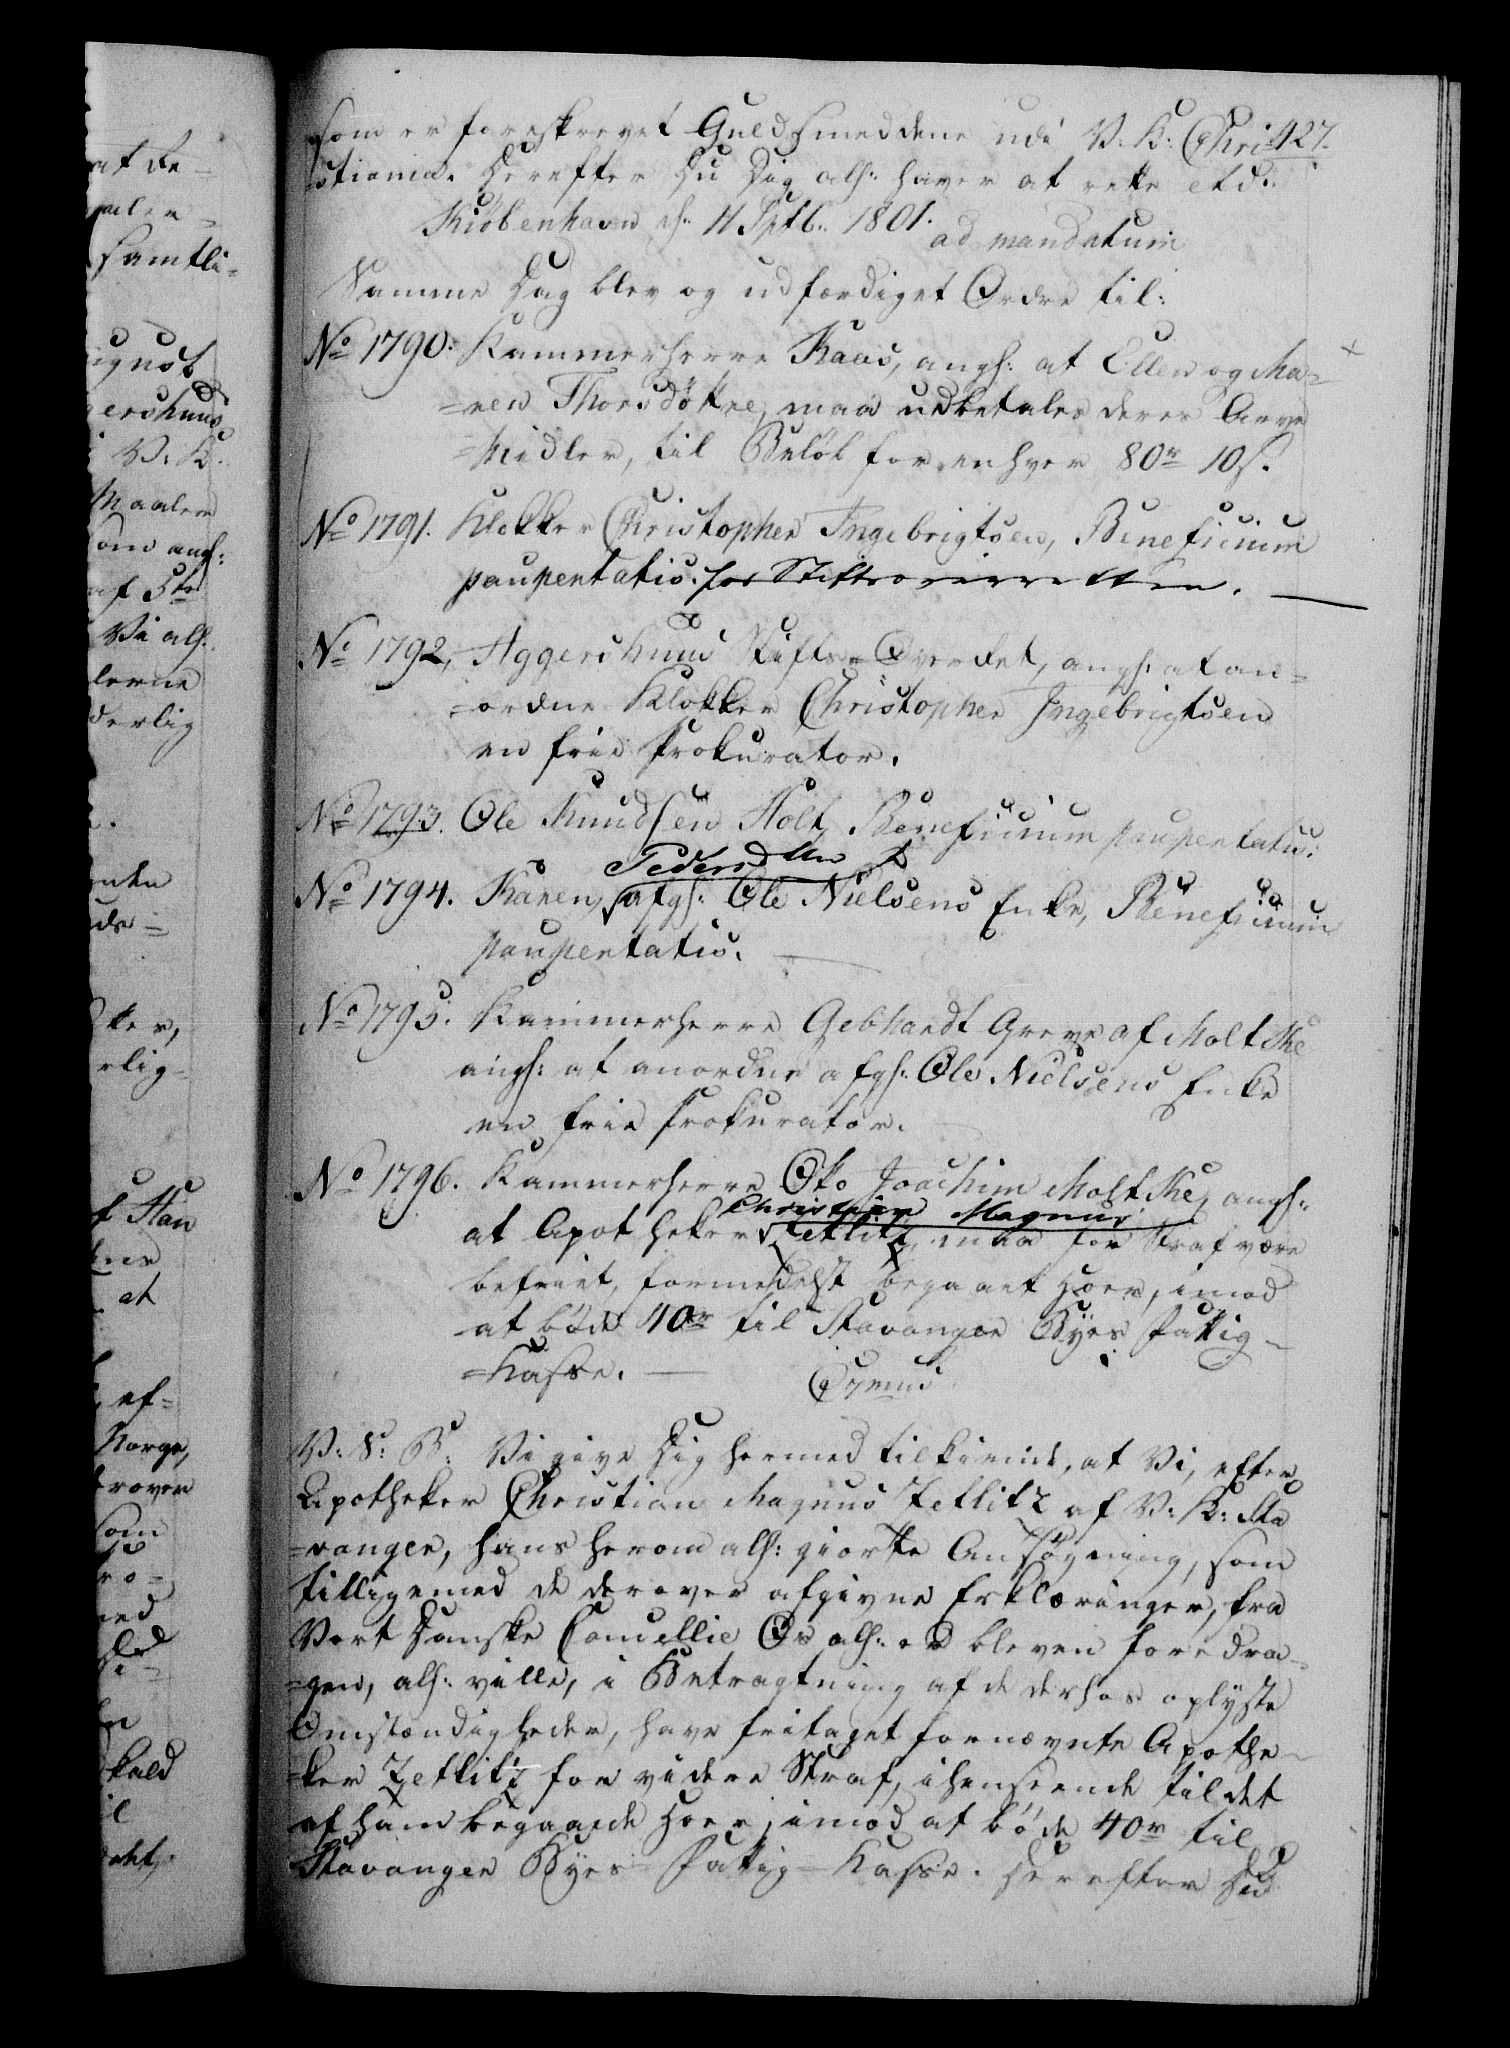 som er foreskrevet Guldsmeddene udi V: K: Chri- 427.
stiania. Derefter Du Dig als: haver at rette etc:
Kiöbenhavn d: 11 Sptb: 1801. ad mandatum
Samme Dag blev og udfærdiget Ordre til:
No 1790. Kammerherre Kaas, angs: at Ellen og Ma-
=ren Thorsdöttre, maa udbetales deres Arve
=Midler, til Belöb for enhver 80r 10s.
No 1791. Klokker Christopher Ingebrigtsen, Beneficium
paupertatis. for Stiftsoverretten.
No 1792, Aggershuus Stifts-Overdet, angs: at an=
=ordne Klokker Christopher Ingebrigtsen
en frie Prokurator.
No 1793. Ole Knudsen Holt, Beneficium paupertatis:
Pedersdtter
No 1794. Karen, afgs: Ole Nielsens Enke, Beneficium
paupertatis.
No 1795. Kammerherre Gebhardt Greve af Moltke
angs: at anordne afgs: Ole Nielsens Enke
en frie Prokurator.
No 1796. Kammerherre Otto Joachim Moltke, angs:
Christian Magnus
at Apotheker Zetlitz, maa for Straf være
befriet, formedelst begaaet Hoer, imod
at böde 40r til Stavanger Byes Fattig-
=Kasse.
V: S: B: Vi give Dig hermed tilkiende, at Vi, efter
Apotheker Christian Magnus Zetlitz af V: K: Sta
=vanger, hans herom als: giorte Ansögning, som
tilligemed de derover afgivne Erklæringer, fra
Vort Danske Cancellie Os als: er bleven foredra-
=gen, als: ville, i Betragtning af de derhos oplyste
Omstændigheder, have fritaget fornævnte Apothe-
=ker Zetlitz for videre Straf, ihenseende til det
af ham begaaede Hoer, imod at böde 40r til
Stavanger Byes Fattig-Kasse. Derefter Du